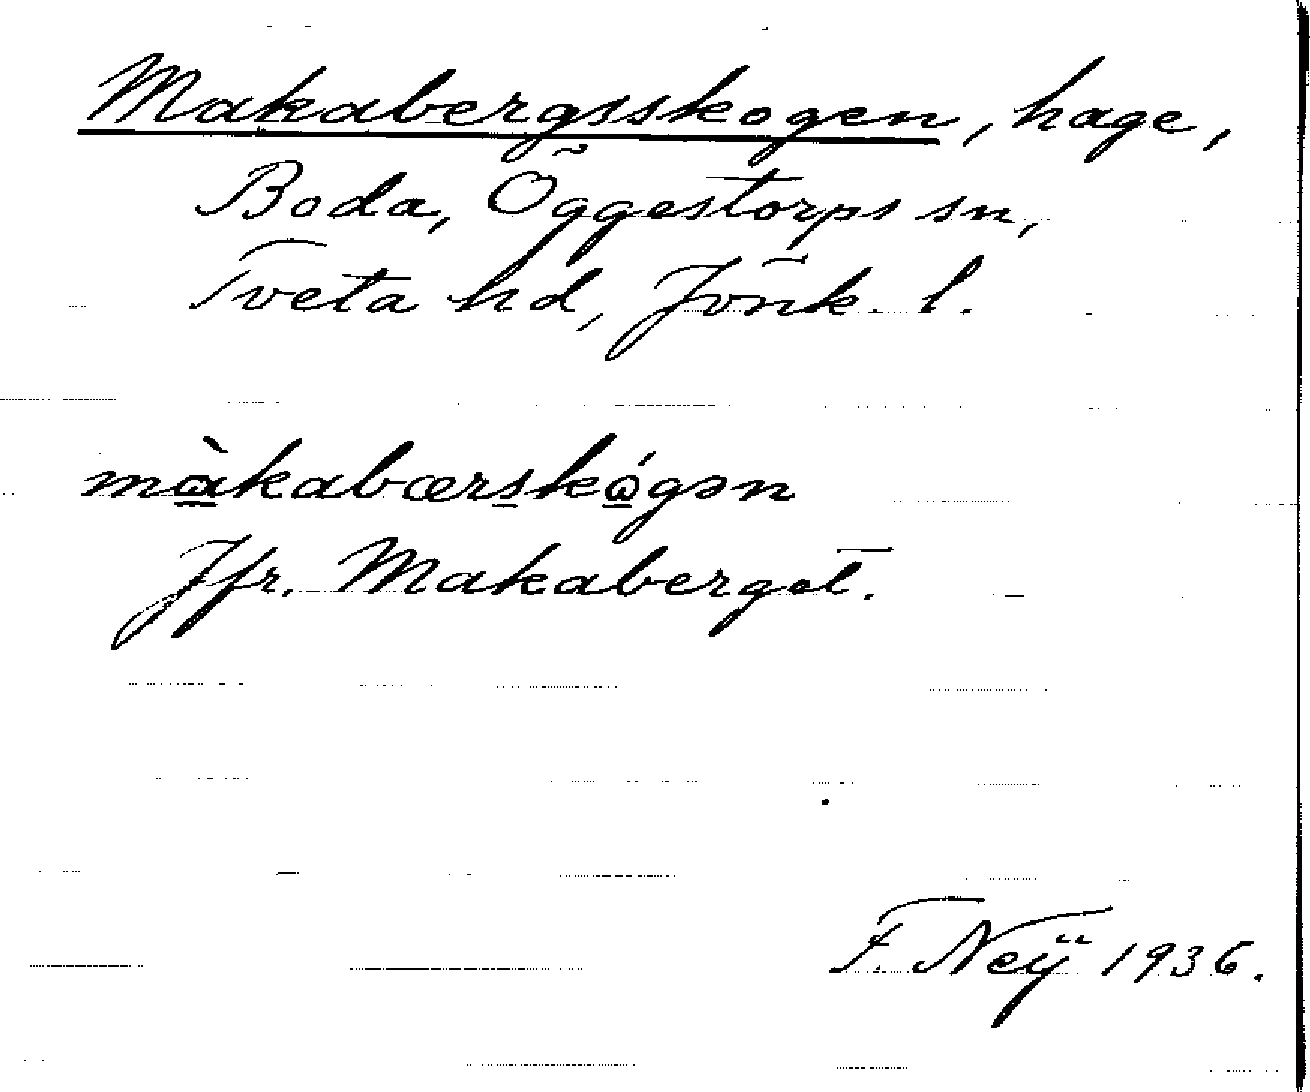 Makabergsskogen, hage,
Boda, Öggestorps sn,
Tveta hd, Jönk. l.
mɷ̀kabærskɷ́gən
Jfr. Makaberget.
F. Neÿ 1936.